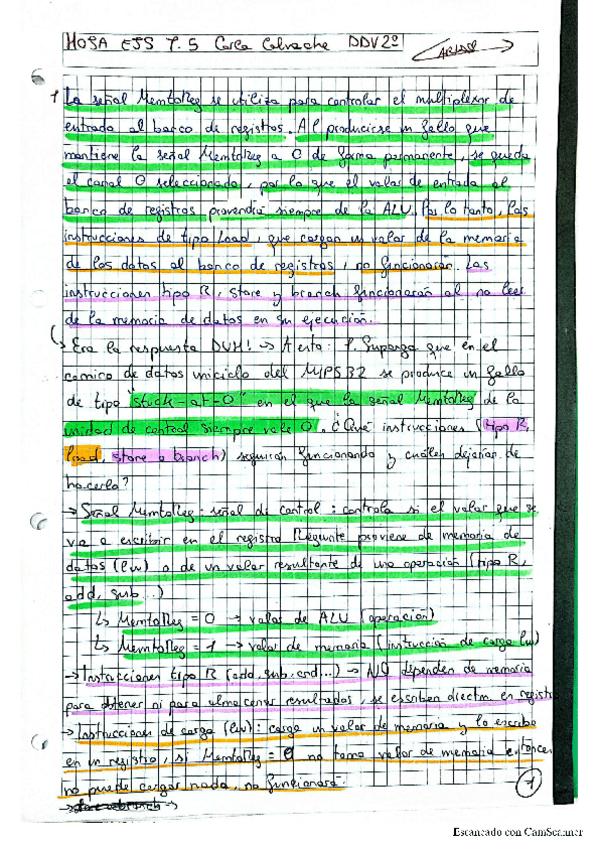 HOJA EJS T.5 Carla Calvache DDV2º
1 La señal MemtoReg se utiliza para controlar el multiplexor de
entrada al banco de registros. Al producirse un fallo que
mantiene la señal MemtoReg a 0 de forma permanente, se queda
el canal 0 seleccionado, por lo que el valor de entrada al
banco de registros provendrá siempre de la ALU. Por lo tanto, las
instrucciones de tipo load, que cargan un valor de la memoria
de los datos al banco de registros, no funcionarán. Las
instrucciones tipo R, store y branch funcionarán al no leer
de la memoria de datos en su ejecución.
Era la respuesta DVM! → Acerta: 1. Suponga que en el
camino de datos uniciclo del MIPS32 se produce un fallo
de tipo "stuck-at-0" en el que la señal MemtoReg de la
unidad de control siempre vale 0. ¿Qué instrucciones (tipo R,
load, store o branch) seguirán funcionando y cuáles dejarían de
hacerlo?
→ Señal MemtoReg: señal de control: controla si el valor que se
va a escribir en el registro proviene de memoria de
datos (lw) o de un valor resultante de una operación (tipo R,
add, sub...)
↳ MemtoReg = 0 → valor de ALU (operación)
↳ MemtoReg = 1 → valor de memoria (instrucción de carga lw)
→ Instrucciones tipo R (add, sub, and...) → NO dependen de memoria
para obtener ni para almacenar resultados, se escriben directm. en registro
→ Instrucciones de carga (lw): carga un valor de memoria y lo escribe
en un registro, si MemtoReg = 0 no toma valor de memoria entonces
no puede cargar nada, no funcionará
1
Escaneado con CamScanner